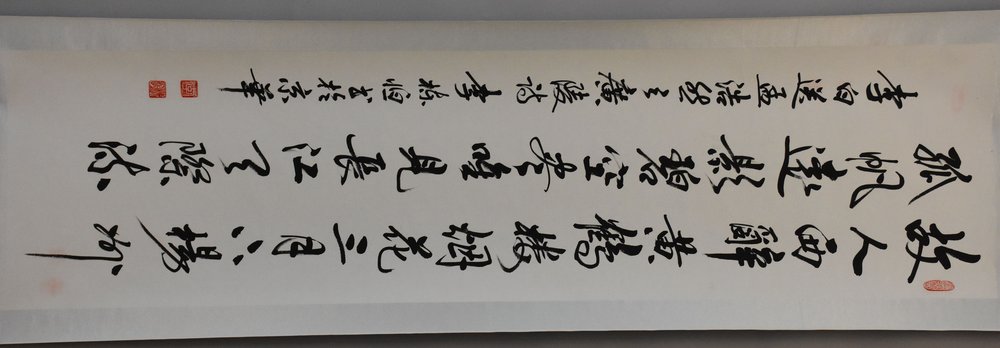 故人西辭黄鶴樓烟花三月下揚州
孤帆遠影碧空尽唯見長江天際流
李白送孟浩然之廣陵詩 李恒书於京華